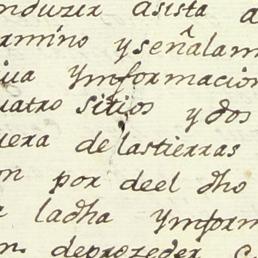 nduzer asista a
ermino yseñalam
iua ynformacion
uatro sitios y dos
uera de lastierras
on por deel dho
a ladha ynform
on deprozeder c